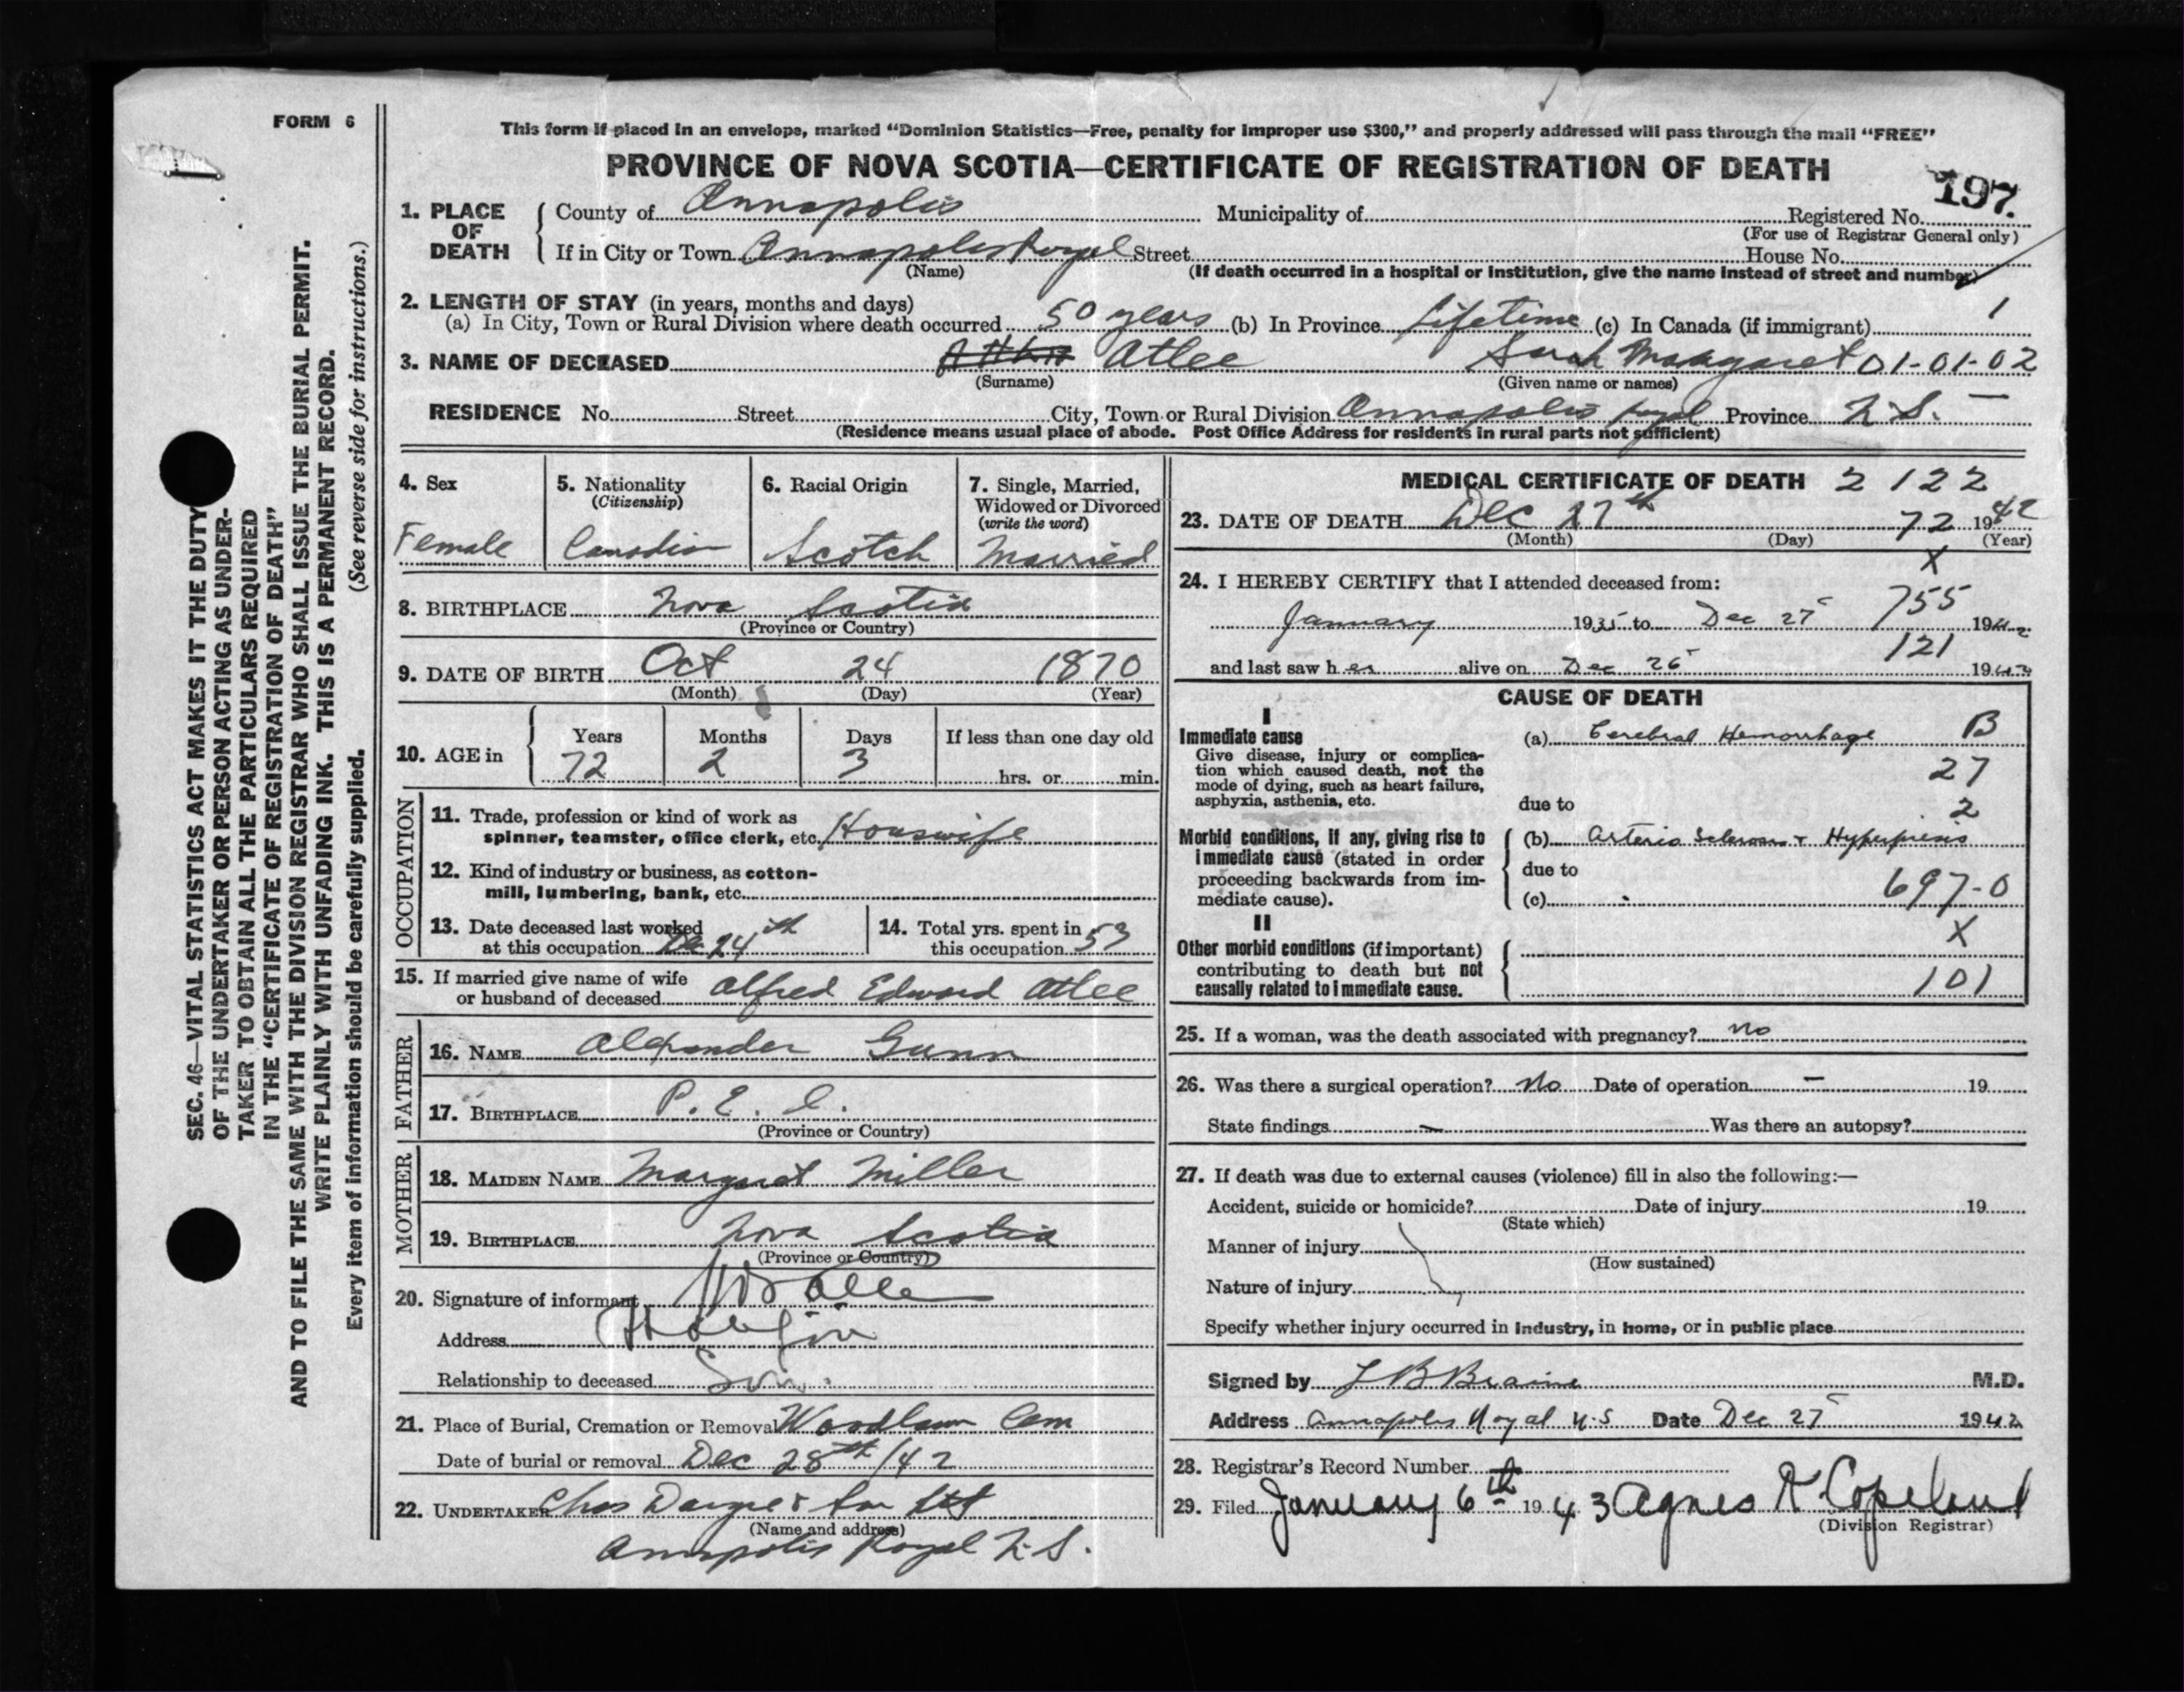 FORM 6
This form if placed in an envelope, marked "Dominion Statistics—Free, penalty for improper use $300," and properly addressed will pass through the mail "FREE"
PROVINCE OF NOVA SCOTIA—CERTIFICATE OF REGISTRATION OF DEATH
197.
1. PLACE OF DEATH County of Annapolis Municipality of Registered No.
(For use of Registrar General only)
If in City or Town Annapolis Royal Street House No.
(Name) (If death occurred in a hospital or institution, give the name instead of street and number)
2. LENGTH OF STAY (in years, months and days) 1
(a) In City, Town or Rural Division where death occurred 50 years (b) In Province Lifetime (c) In Canada (if immigrant)
3. NAME OF DECEASED Atlee Sarah Margaret 01-01-02
(Surname) (Given name or names)
RESIDENCE No. Street City, Town or Rural Division Annapolis Royal Province N.S. —
(Residence means usual place of abode. Post Office Address for residents in rural parts not sufficient)
4. Sex
Female
5. Nationality
(Citizenship)
Canadian
6. Racial Origin
Scotch
7. Single, Married,
Widowed or Divorced
(write the word)
Married
8. BIRTHPLACE Nova Scotia
(Province or Country)
9. DATE OF BIRTH Oct 24 1870
(Month) (Day) (Year)
10. AGE in Years Months Days If less than one day old
72 2 3 hrs. or min.
OCCUPATION
11. Trade, profession or kind of work as
spinner, teamster, office clerk, etc. Houswife
12. Kind of industry or business, as cotton-
mill, lumbering, bank, etc.
13. Date deceased last worked
at this occupation Dec 24th
14. Total yrs. spent in
this occupation 53
15. If married give name of wife
or husband of deceased Alfred Edward Atlee
FATHER
16. NAME Alexander Gunn
17. BIRTHPLACE P. E. I.
(Province or Country)
MOTHER
18. MAIDEN NAME Margaret Miller
19. BIRTHPLACE Nova Scotia
(Province or Country)
20. Signature of informant
Address
Relationship to deceased Son.
21. Place of Burial, Cremation or Removal Woodlawn Cem
Date of burial or removal Dec 28th/42
22. UNDERTAKER Chas Dargie & Son Ltd
(Name and address)
Annapolis Royal N.S.
MEDICAL CERTIFICATE OF DEATH 2 122
23. DATE OF DEATH Dec 27th 72 1942
(Month) (Day) (Year)
X
24. I HEREBY CERTIFY that I attended deceased from:
755
January 1935 to Dec 27 1942
121
and last saw her alive on Dec 26 1942
CAUSE OF DEATH
I
Immediate cause
Give disease, injury or complica-
tion which caused death, not the
mode of dying, such as heart failure,
asphyxia, asthenia, etc.
(a) Cerebral Hemorrhage B
27
due to 2
Morbid conditions, if any, giving rise to
immediate cause (stated in order
proceeding backwards from im-
mediate cause).
(b) Arterio Sclerosis + Hyperpiesis
due to
(c) 697-0
II X
Other morbid conditions (if important)
contributing to death but not
causally related to immediate cause.
101
25. If a woman, was the death associated with pregnancy? no
26. Was there a surgical operation? No Date of operation — 19
State findings — Was there an autopsy?
27. If death was due to external causes (violence) fill in also the following:—
Accident, suicide or homicide? Date of injury 19
(State which)
Manner of injury
(How sustained)
Nature of injury
Specify whether injury occurred in industry, in home, or in public place
Signed by L B Braine M.D.
Address Annapolis Royal N.S Date Dec 27 1942
28. Registrar's Record Number
29. Filed January 6th 1943 Agnes R. Copeland
(Division Registrar)
SEC. 46—VITAL STATISTICS ACT MAKES IT THE DUTY
OF THE UNDERTAKER OR PERSON ACTING AS UNDER-
TAKER TO OBTAIN ALL THE PARTICULARS REQUIRED
IN THE "CERTIFICATE OF REGISTRATION OF DEATH"
AND TO FILE THE SAME WITH THE DIVISION REGISTRAR WHO SHALL ISSUE THE BURIAL PERMIT.
WRITE PLAINLY WITH UNFADING INK. THIS IS A PERMANENT RECORD.
Every item of information should be carefully supplied. (See reverse side for instructions.)